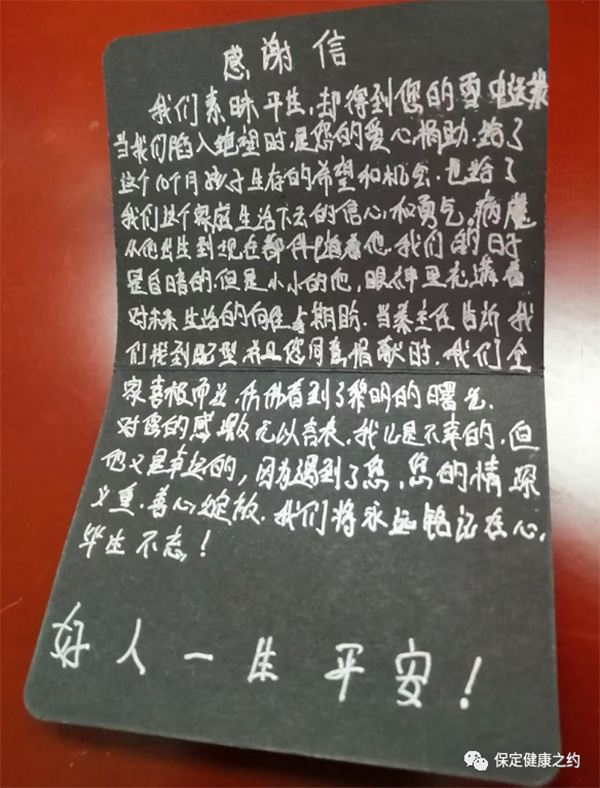 感谢信
我们素昧平生,却得到您的雪中送炭
当我们陷入绝望时,是您的爱心捐助.给了
这个10个月孩子生存的希望和机会.也给了
我们这个家庭生活下去的信心和勇气.病魔
从他出生到现在都伴随着他.我们的日子
是白暗的.但是小小的他,眼神里充满着
对未来生活的向往与期盼.当秦主任告诉我
们找到配型并且您同意捐献时.我们全
家喜极而泣.仿佛看到了黎明的曙光.
对您的感激无以言表.我儿是不幸的,但
他又是幸运的,因为遇到了您,您的情深
义重.善心绽放.我们将永远铭记在心,
毕生不忘!
好人一生平安!
保定健康之约